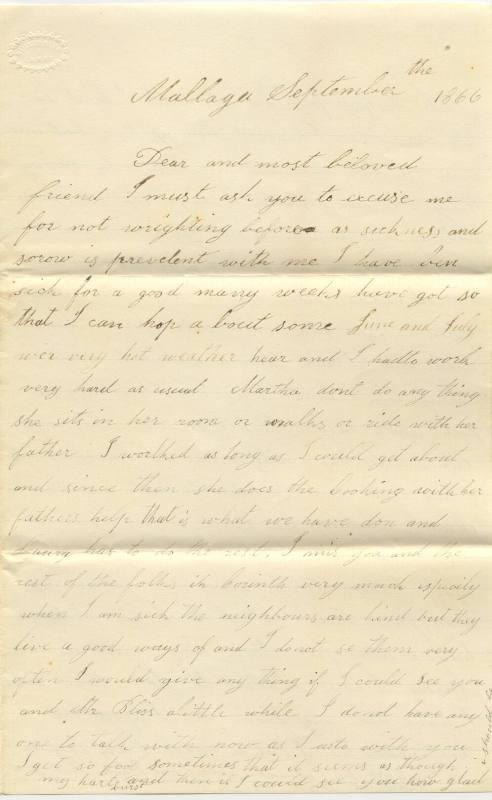 Mallaga September the 1866
Dear and most beloved
friend I must ask you to excuse me
for not wrighting before as sickness and
sorow is prevelent with me I have ben
sick for a good many weeks have got so
that I can hop a bout some June and July
wer very hot weather hear and I hadto work
very hard as usual Martha dont do any thing
she sits in her room or walks or ride with her
father I worlked as long as I could get about
and since then she does the cooking with her
fathers help that is what we have don and
has to do the rest. I mis you and the
rest of the folks in Corinth very much espicily
when I am sick the neighbours are kind but they
live a good ways of and I do not se them very
often I would give any thing if I could see you
and Mr Bliss alittle while I donot have any
one to talk with now as I usto with you
I get so sometimes that it seems as though
my hart burst and then is I could see you how glad
I should be